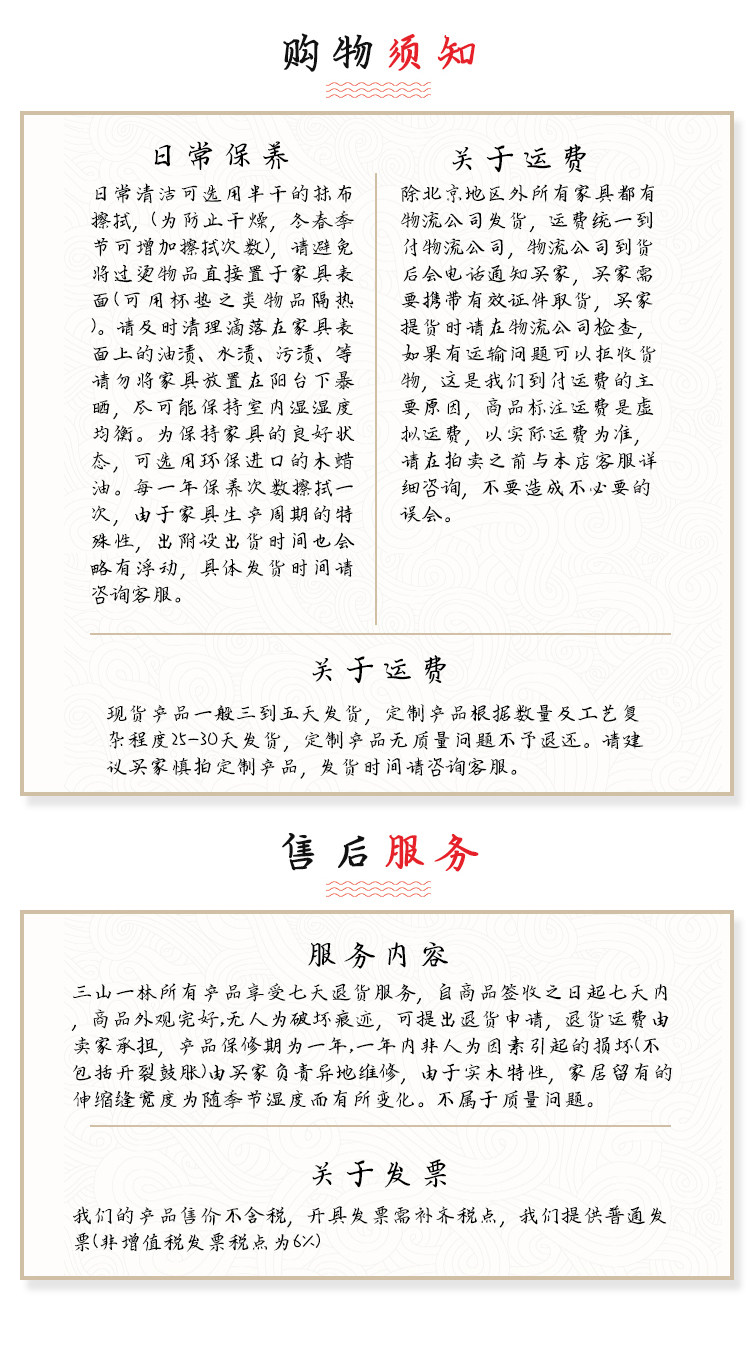 购物须知
日常保养
日常清洁可选用半干的抹布
擦拭，(为防止干燥，冬春季
节可增加擦拭次数)，请避免
将过烫物品直接置于家具表
面(可用杯垫之类物品隔热
)。请及时清理滴落在家具表
面上的油渍、水渍、污渍、等
请勿将家具放置在阳台下暴
晒，尽可能保持室内湿湿度
均衡。为保持家具的良好状
态，可选用环保进口的木蜡
油。每一年保养次数擦拭一
次，由于家具生产周期的特
殊性，出附设出货时间也会
略有浮动，具体发货时间请
咨询客服。
关于运费
除北京地区外所有家具都有
物流公司发货，运费统一到
付物流公司，物流公司到货
后会电话通知买家，买家需
要携带有效证件取货，买家
提货时请在物流公司检查，
如果有运输问题可以拒收货
物，这是我们到付运费的主
要原因，商品标注运费是虚
拟运费，以实际运费为准，
请在拍卖之前与本店客服详
细咨询，不要造成不必要的
误会。
关于运费
现货产品一般三到五天发货，定制产品根据数量及工艺复
杂程度25-30天发货，定制产品无质量问题不予退还。请建
议买家慎拍定制产品，发货时间请咨询客服。
售后服务
服务内容
三山一林所有产品享受七天退货服务，自商品签收之日起七天内
，商品外观完好,无人为破坏痕迹，可提出退货申请，退货运费由
卖家承担，产品保修期为一年,一年内非人为因素引起的损坏(不
包括开裂鼓胀)由买家负责异地维修，由于实木特性，家居留有的
伸缩缝宽度为随季节湿度而有所变化。不属于质量问题。
关于发票
我们的产品售价不含税，开具发票需补齐税点，我们提供普通发
票(非增值税发票税点为6%)